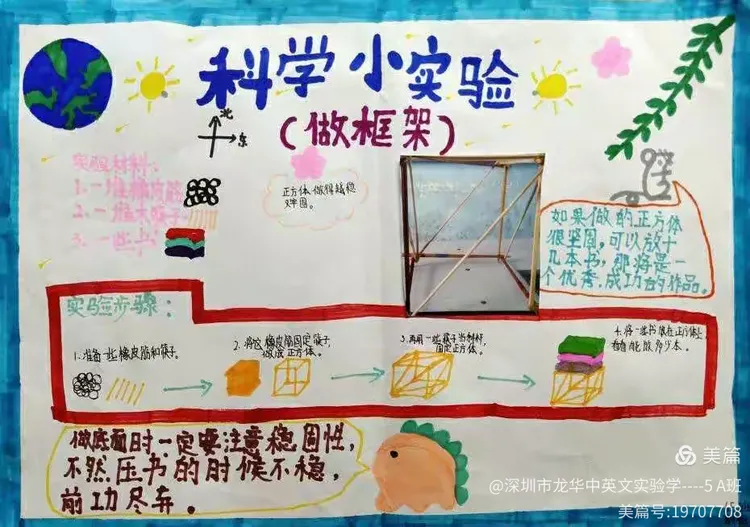 科学小实验
(做框架)
北
东
实验材料:
1. 一堆橡皮筋
2. 一堆木筷子
3. 一些书
正方体做得越稳
牢固。
如果做的正方体
很坚固,可以放十
几本书,那将是一
个优秀、成功的作品。
实验步骤:
1.准备一些橡皮筋和筷子。
2. 将橡皮筋固定筷子,
做成正方体。
3.再用一些筷子当斜杆,
固定正方体。
4.将一些书放在正方体上,
看能放多少本。
做底面时,一定要注意稳固性,
不然压书的时候不稳,
前功尽弃。
美篇
@深圳市龙华中英文实验学----5 A班
美篇号:19707708